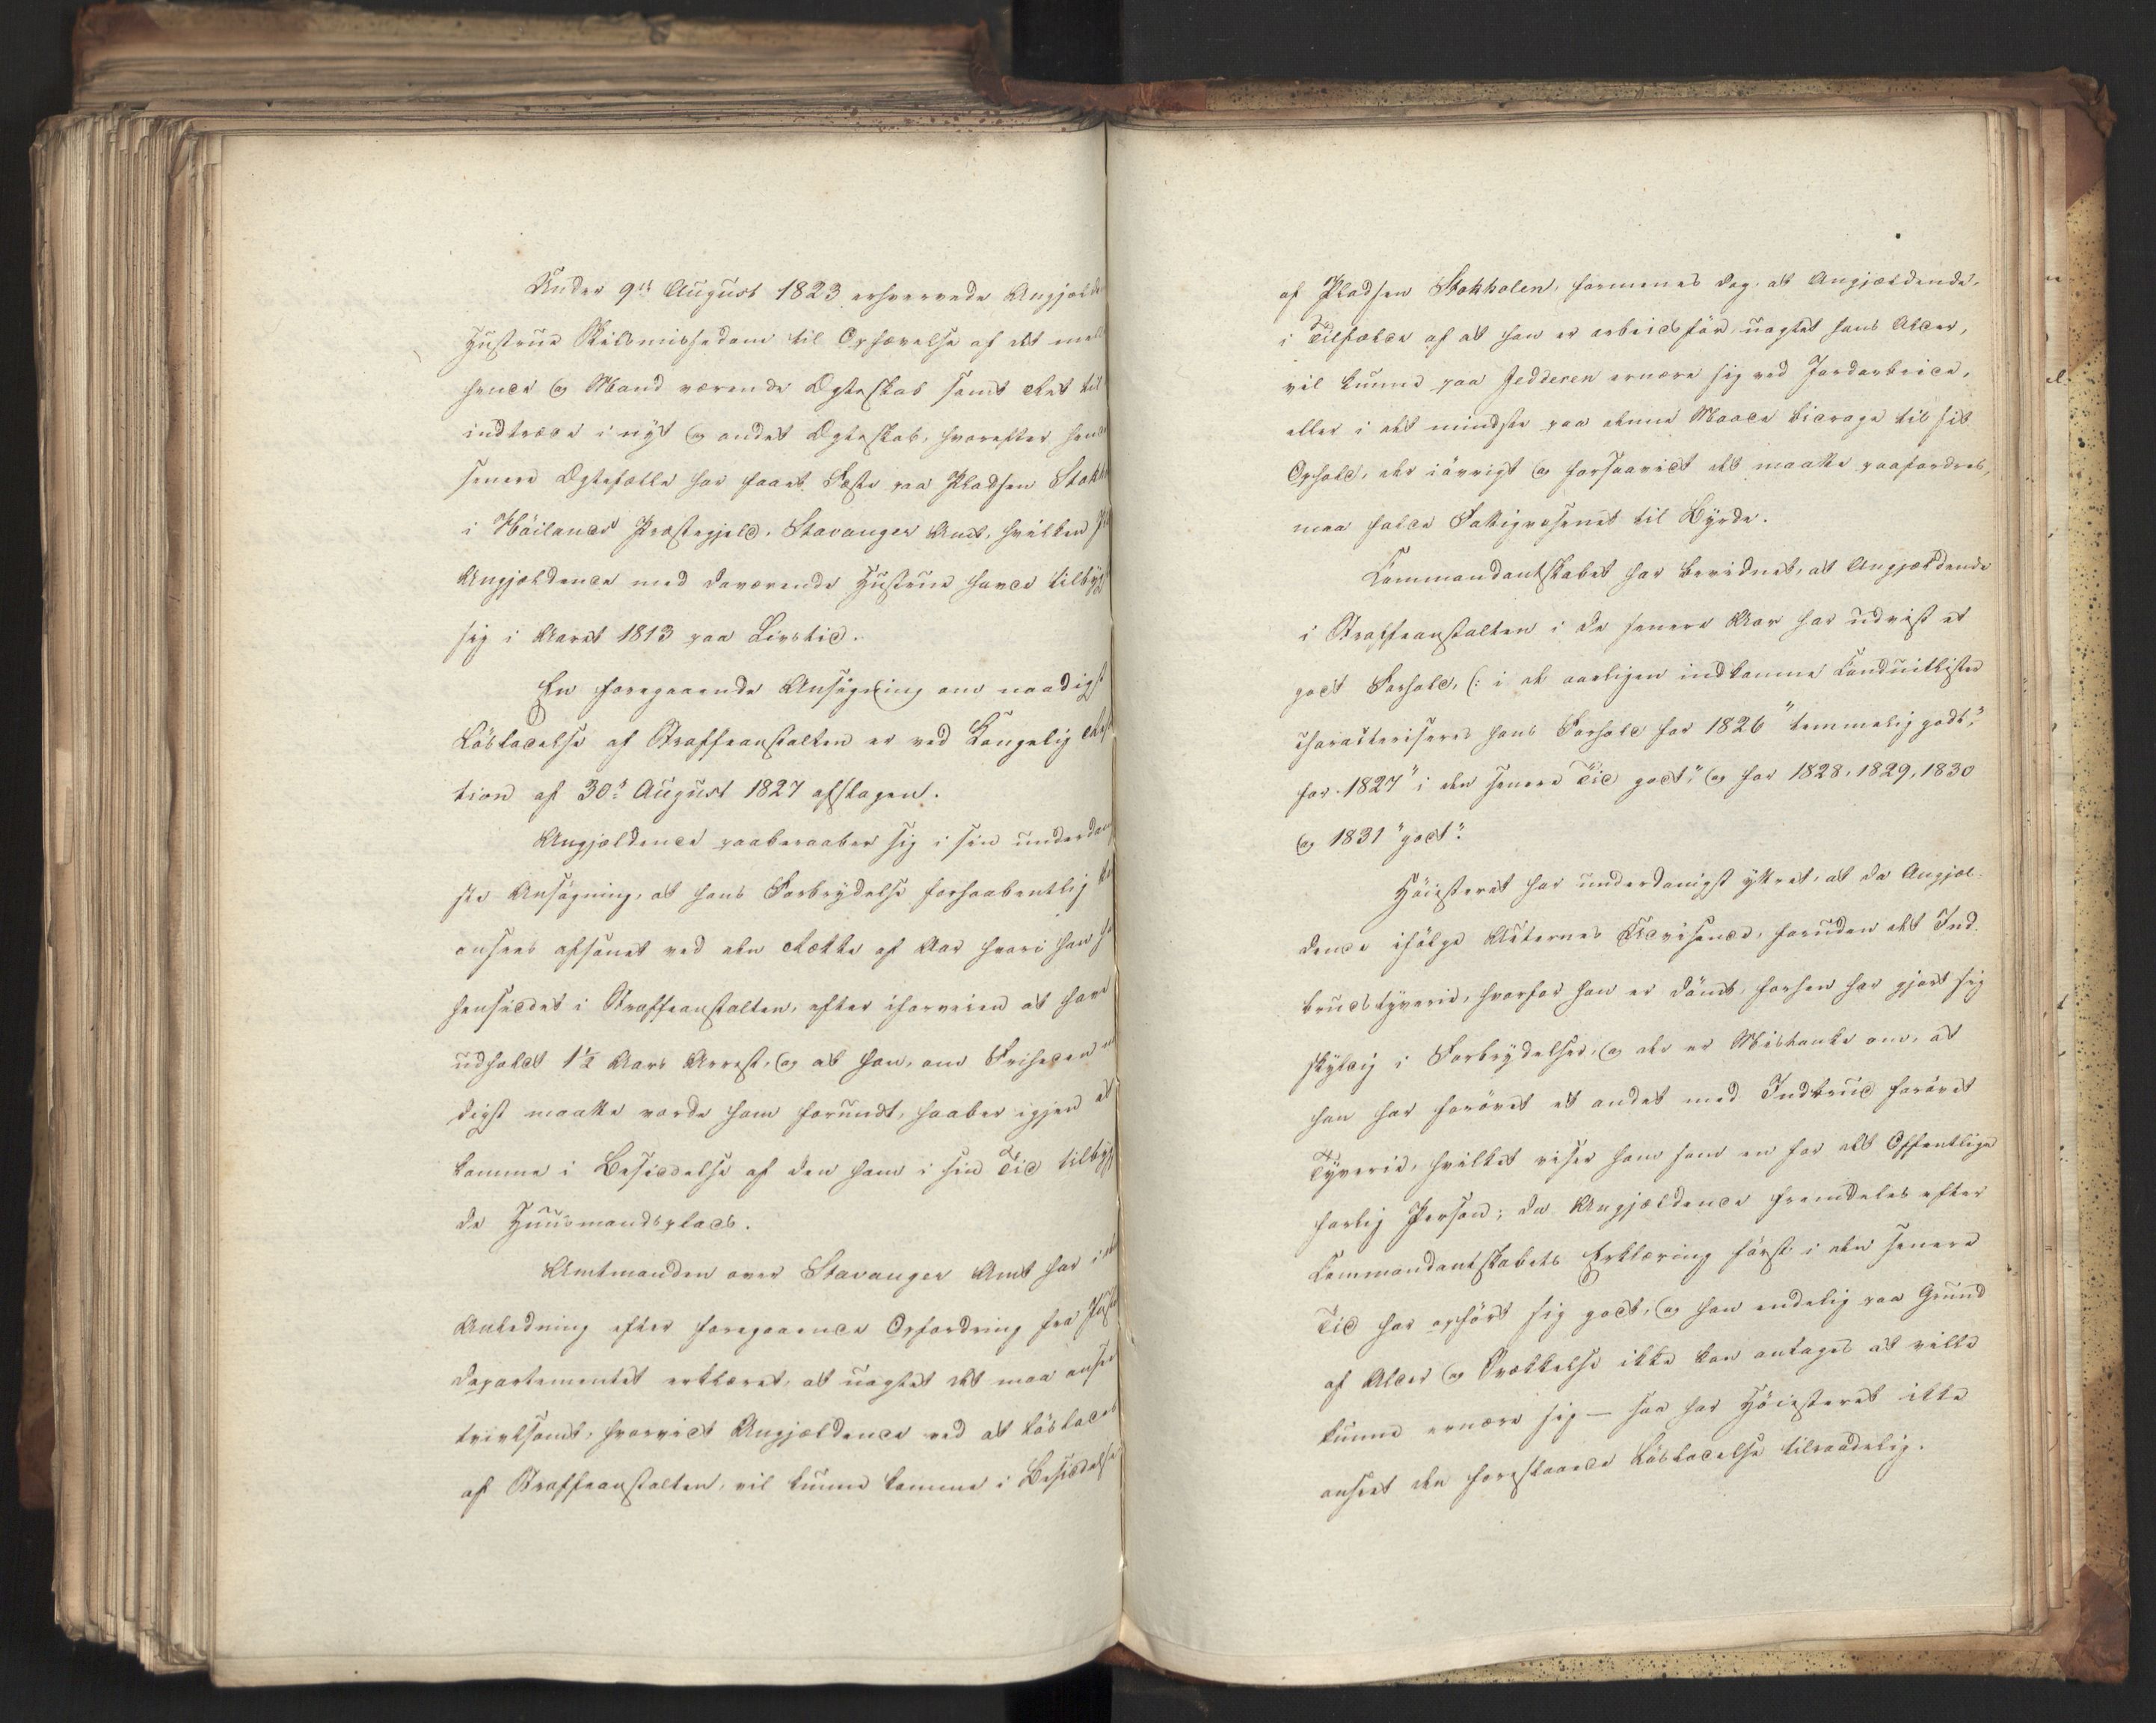 Under 9de August 1823 erhvervede Angjælde
Hustrue Skilsmissedom til Ophævelse af det mel
hende og Mand værende Ægteskab samt Ret til
indtræde i nyt og andet Ægteskab, hvorefter hen
senere Ægtefælle har faaet Fæste paa Pladsen Stokh
i Höilands Præstegjeld, Stavanger Amt, hvilken
Angjældende med daværende Hustrue havde tilbyg
sig i Aaret 1813 paa Livstid.
En foregaaende Ansögning om naadigst
Lösladelse af Straffeanstalten er ved Kongelig Reso
tion af 30te August 1827 afslagen.
Angjældende paaberaaber sig i sin underdan
ste Ansögning, at hans Forbrydelse forhaabentlig
ansees afsonet ved den Række af Aar hvori han
hensiddet i Straffeanstalten, efter iforveien at have
udholdt 1½ Aars Arrest, og at han, om Friheden
digst maatte vorde ham forundt, haaber igjen at
komme i Besiddelse af den ham i sin Tid tilbyg
de Huusmandsplads.
Amtmanden over Stavanger Amt har i
Anledning efter foregaaende Opfordring fra Justi
departementet erklæret, at uagtet det maa anse
tvivlsomt, hvorvidt Angjældende ved at löslades
af Straffeanstalten, vil kunne komme i Besiddelse
af Pladsen Stokholen, formenes dog, at Angjældende,
i Tilfælde af at han er arbeidsför uagtet hans Alder,
vil kunne paa Jedderen ernære sig ved Jordarbeide,
eller i det mindste paa denne Maade bidrage til sit
Ophold, der iövrigt og forsaavidt det maatte paafordres,
maa falde Fattigvæsenet til Byrde.
Commandantskabet har bevidnet, at Angjældende
i Straffeanstalten i de senere Aar har udvist et
godt Forhold, (: i de aarligen indkomne Conduitlister
charakteriseres hans Forhold for 1826 "temmelig godt,"
for 1827 "i den senere Tid godt", og for 1828, 1829, 1830
og 1831 "godt".
Höiesteret har underdanigst yttret, at da Angjæl-
dende ifölge Acternes Udvisende, foruden det Ind-
brudstyverie, hvorfor han er dömt, forhen har gjort sig
skyldig i Forbrydelser, og der er Mistanke om, at
han har forövet et andet med Indbrud forövet
Tyverie, hvilket viser ham som en for det Offentlige
farlig Person; da Angjældende fremdeles efter
Commandantskabets Erklæring först i den senere
Tid har opfört sig godt, og han endelig paa Grund
af Alder og Svækkelse ikke kan antages at ville
kunne ernære sig — saa har Höiesteret ikke
anseet den foreslaaede Lösladelse tilraadelig.